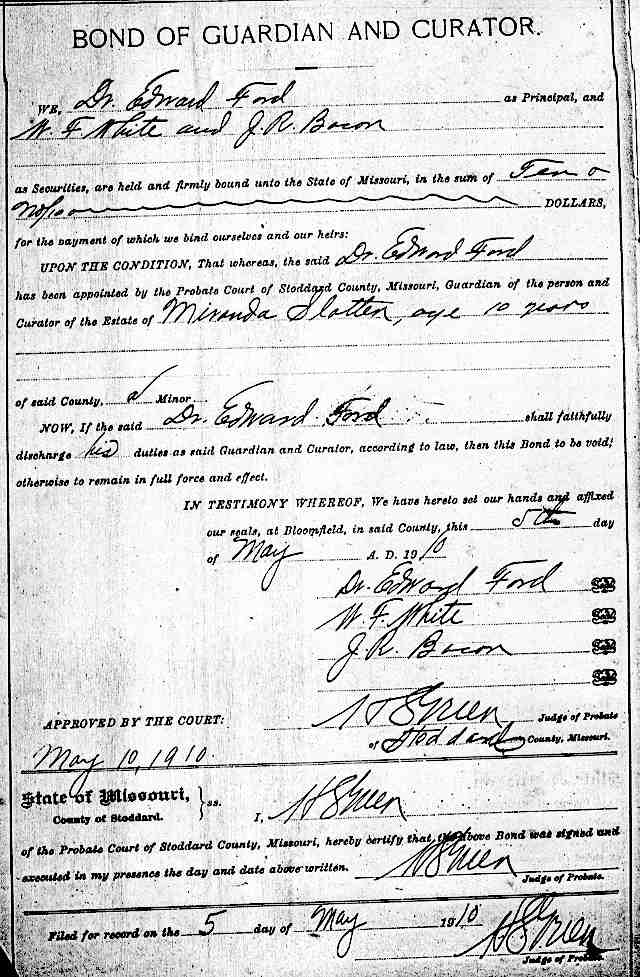 BOND OF GUARDIAN AND CURATOR.
WE, Dr. Edward Ford as Principal, and
W. F. White and J. R. Bacon
as Securities, are held and firmly bound unto the State of Missouri, in the sum of Ten &
No/100 DOLLARS,
for the payment of which we bind ourselves and our heirs:
UPON THE CONDITION, That whereas, the said Dr. Edward Ford
has been appointed by the Probate Court of Stoddard County, Missouri, Guardian of the person and
Curator of the Estate of Miranda Slatten, age 10 years
of said County, a Minor
NOW, If the said Dr. Edward Ford shall faithfully
discharge his duties as said Guardian and Curator, according to law, then this Bond to be void;
otherwise to remain in full force and effect.
IN TESTIMONY WHEREOF, We have hereto set our hands and affixed
our seals, at Bloomfield, in said County, this 5th day
of May A. D. 1910
Dr. Edward Ford Seal
W. F. White Seal
J. R. Bacon Seal
Seal
APPROVED BY THE COURT: Green Judge of Probate
of Stoddard County, Missouri.
May 10, 1910.
State of Missouri, } ss.
County of Stoddard. I, Green
of the Probate Court of Stoddard County, Missouri, hereby certify that the above Bond was signed and
executed in my presence the day and date above written. Green
Judge of Probate.
Filed for record on the 5 day of May 1910 Green
Judge of Probate.